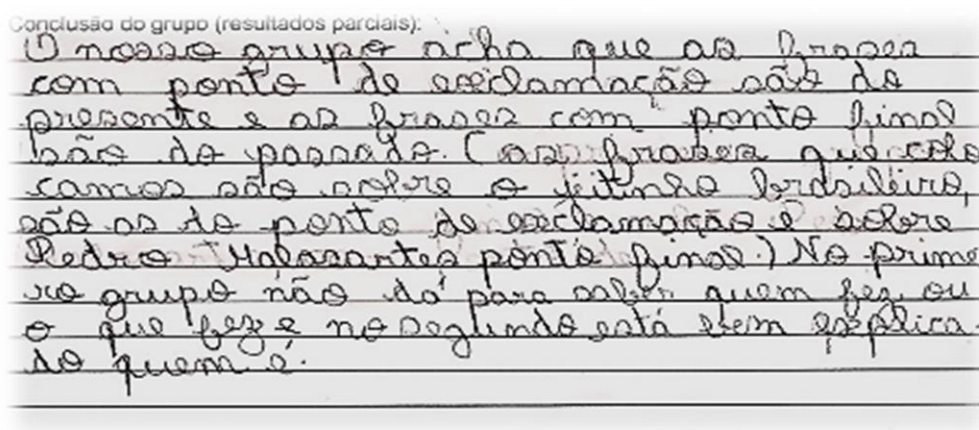 Conclusão do grupo (resultados parciais):
O nosso grupo acha que as frases
com ponto de exclamação são do
presente e as frases com ponto final
são do passado. (as frases que colo
camos são sobre o jeitinho brasileiro,
são as do ponto de exclamação e sobre
Pedro Malasartes ponto final.) No prime
ro grupo não dá para saber quem fez ou
o que fez e no segundo está bem explica
do quem é.